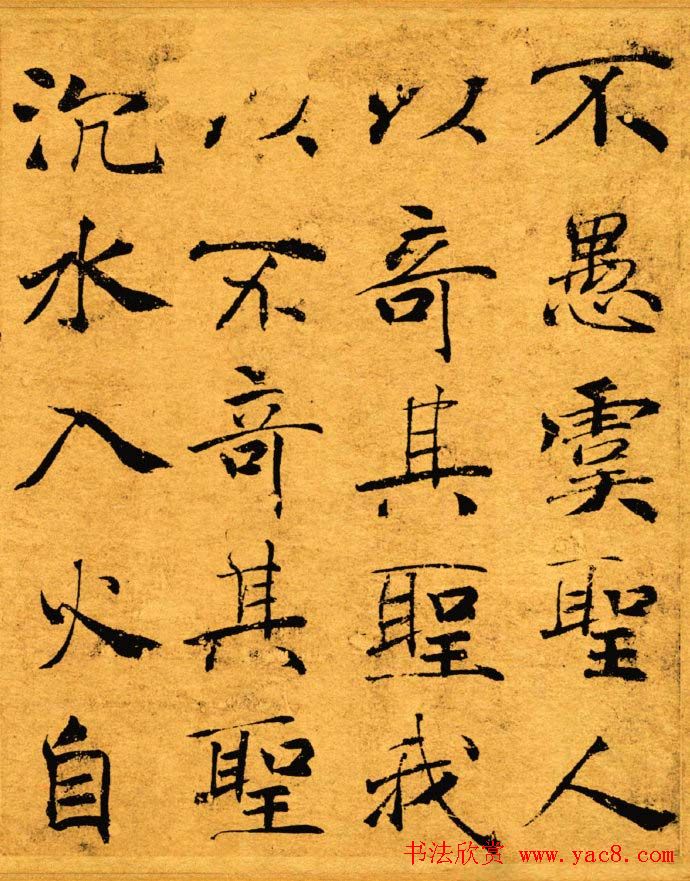 不愚虞聖人
以竒其聖我
以不竒其聖
沉水入火自
书法欣赏 www.yac8.com